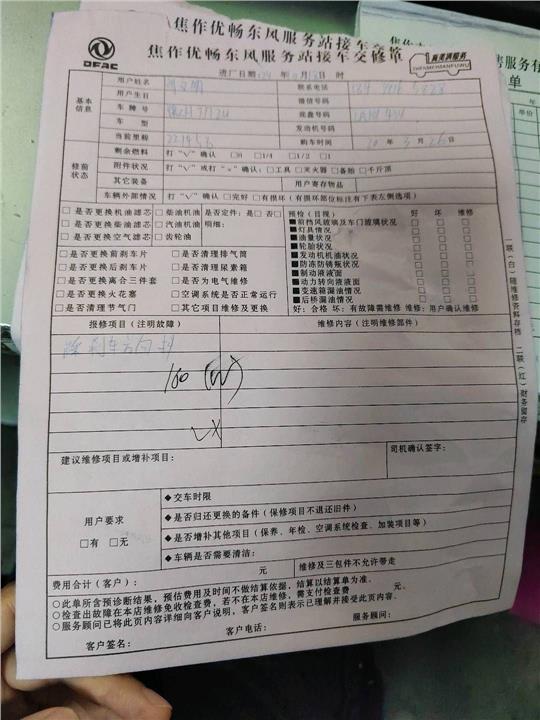 焦作优畅东风服务站接车交
焦作优畅东风服务站接车交修单
DFAC
ZHENMEIHANFUWU
进厂日期 年 月 日 时
基本信息
用户姓名
联系电话
用户生日
微信号码
车牌号
底盘号码
车型
发动机号码
当前里程
购车时间 年 3月26日
修前状态
剩余燃料 打“√”确认 □0 □1/4 □1/2 □1
附件状况 打“√”或打“×”确认:□工具 □灭火器 □备胎 □千斤顶
其它装备
用户寄存物品
车辆外部情况 打“√”确认 □完好 □有损坏(有损坏部位标注有下表左侧选项)
□是否更换机油滤芯 □柴油机油 是否定件:是□否□
□是否更换柴油滤芯 □汽油机油 明细:
□是否更换空气滤芯 □齿轮油
□是否更换前刹车片 □是否清理排气筒
□是否更换后刹车片 □是否清理尿素箱
□是否更换离合三件套 □是否为电气维修
□是否更换火花塞 □空调系统是否正常运行
□是否清理节气门 □其它项目维修及更换
预检(目视) 好 坏 维修
■前挡风玻璃及车门玻璃状况 □ □ □
■灯具情况 □ □ □
■油量状况 □ □ □
■轮胎状况 □ □ □
■发动机机油状况 □ □ □
■防冻防锈瓶状况 □ □ □
■制动液液面 □ □ □
■动力转向液液面 □ □ □
■变速箱漏油情况 □ □ □
■后桥漏油情况 □ □ □
好:合格 坏:有故障需维修 维修:用户确认维修
报修项目(注明故障)
维修内容(注明维修部件)
刹车方向
180
建议维修项目或增补项目:
司机确认签字:
用户要求
□有 □无
◆交车时限
◆是否归还更换的备件(保修项目不退还旧件)
◆是否增补其他项目(保养、年检、空调系统检查、加装项目等)
◆车辆是否需要清洁:
费用合计(客户): 元
维修及三包件不允许带走
○此单所含预诊断结果,预估费用及时间不做结算依据,结算以结算单为准.
○检查出故障在本店维修免收检查费,若不在本店维修,需支付检查费 元.
○服务顾问已将此页内容详细向客户说明,客户签名则表示已理解并接受此页内容.
客户签名: 客户电话: 服务顾问:
一联(白)随维修资料存档 二联(红)财务留存
单
单价